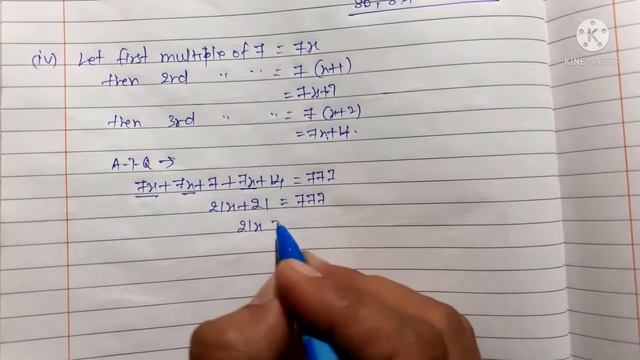 (iv) Let first multiple of 7 = 7x
then 2rd " " = 7 (x+1)
= 7x+7
then 3rd " " = 7 (x+2)
= 7x+14.
A-T-Q →
7x+7x+7+7x+14 = 777
21x+21 = 777
21x =
KINEMASTER